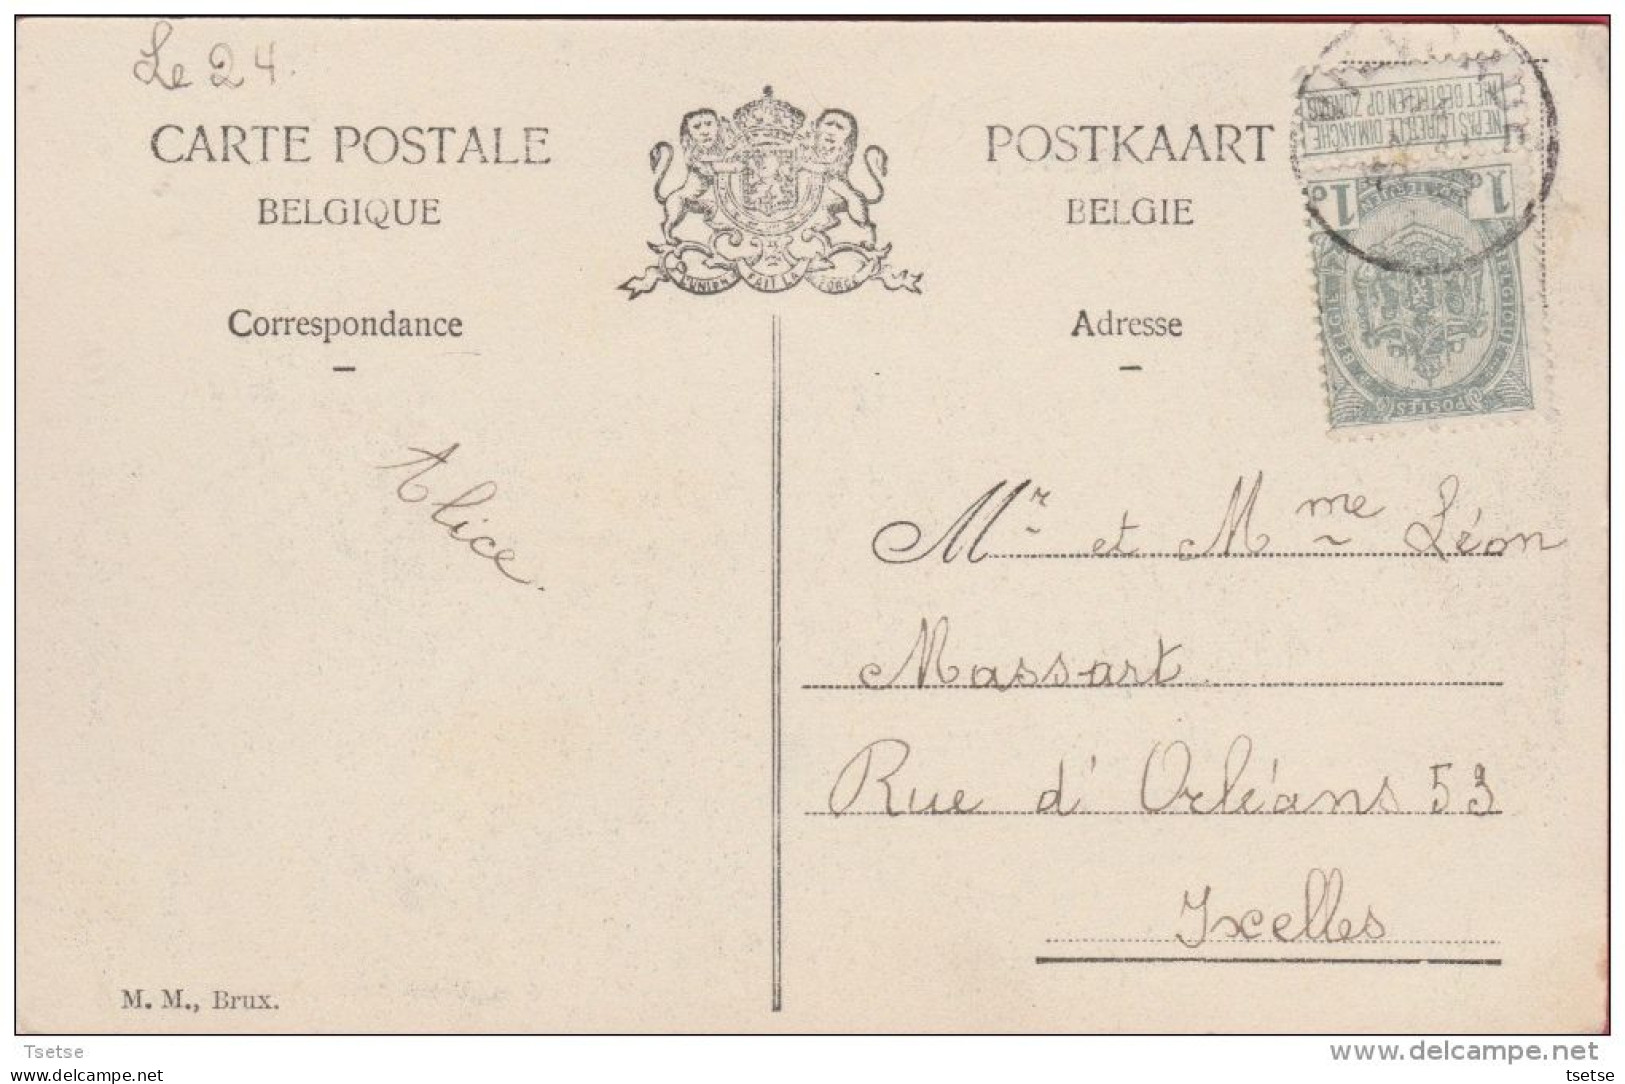 Le 24.
CARTE POSTALE
BELGIQUE
Correspondance
Alice.
M. M., Brux.
L'UNION FAIT LA FORCE
POSTKAART
BELGIE
Adresse
NIET BESTELLEN OP ZONDAG
NE PAS LIVRER LE DIMANCHE
1c 1c
BELGIE POSTES BELGIQUE
Mr et Mme Léon
Massart
Rue d'Orléans 53
Ixelles
Tsetse
www.delcampe.net
tsetse
tsetse